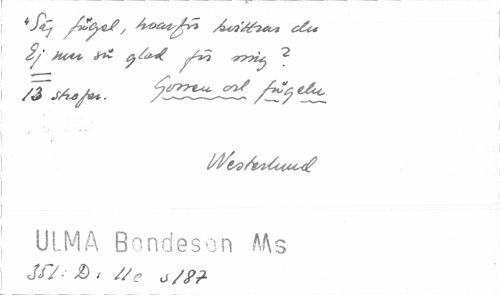 "Säj fågel, hvarför kvittrar du
Ej mer så glad för mig?
13 strofer. Gossen och fågeln
Westerlund
ULMA Bondeson Ms
351: D: 11c s187